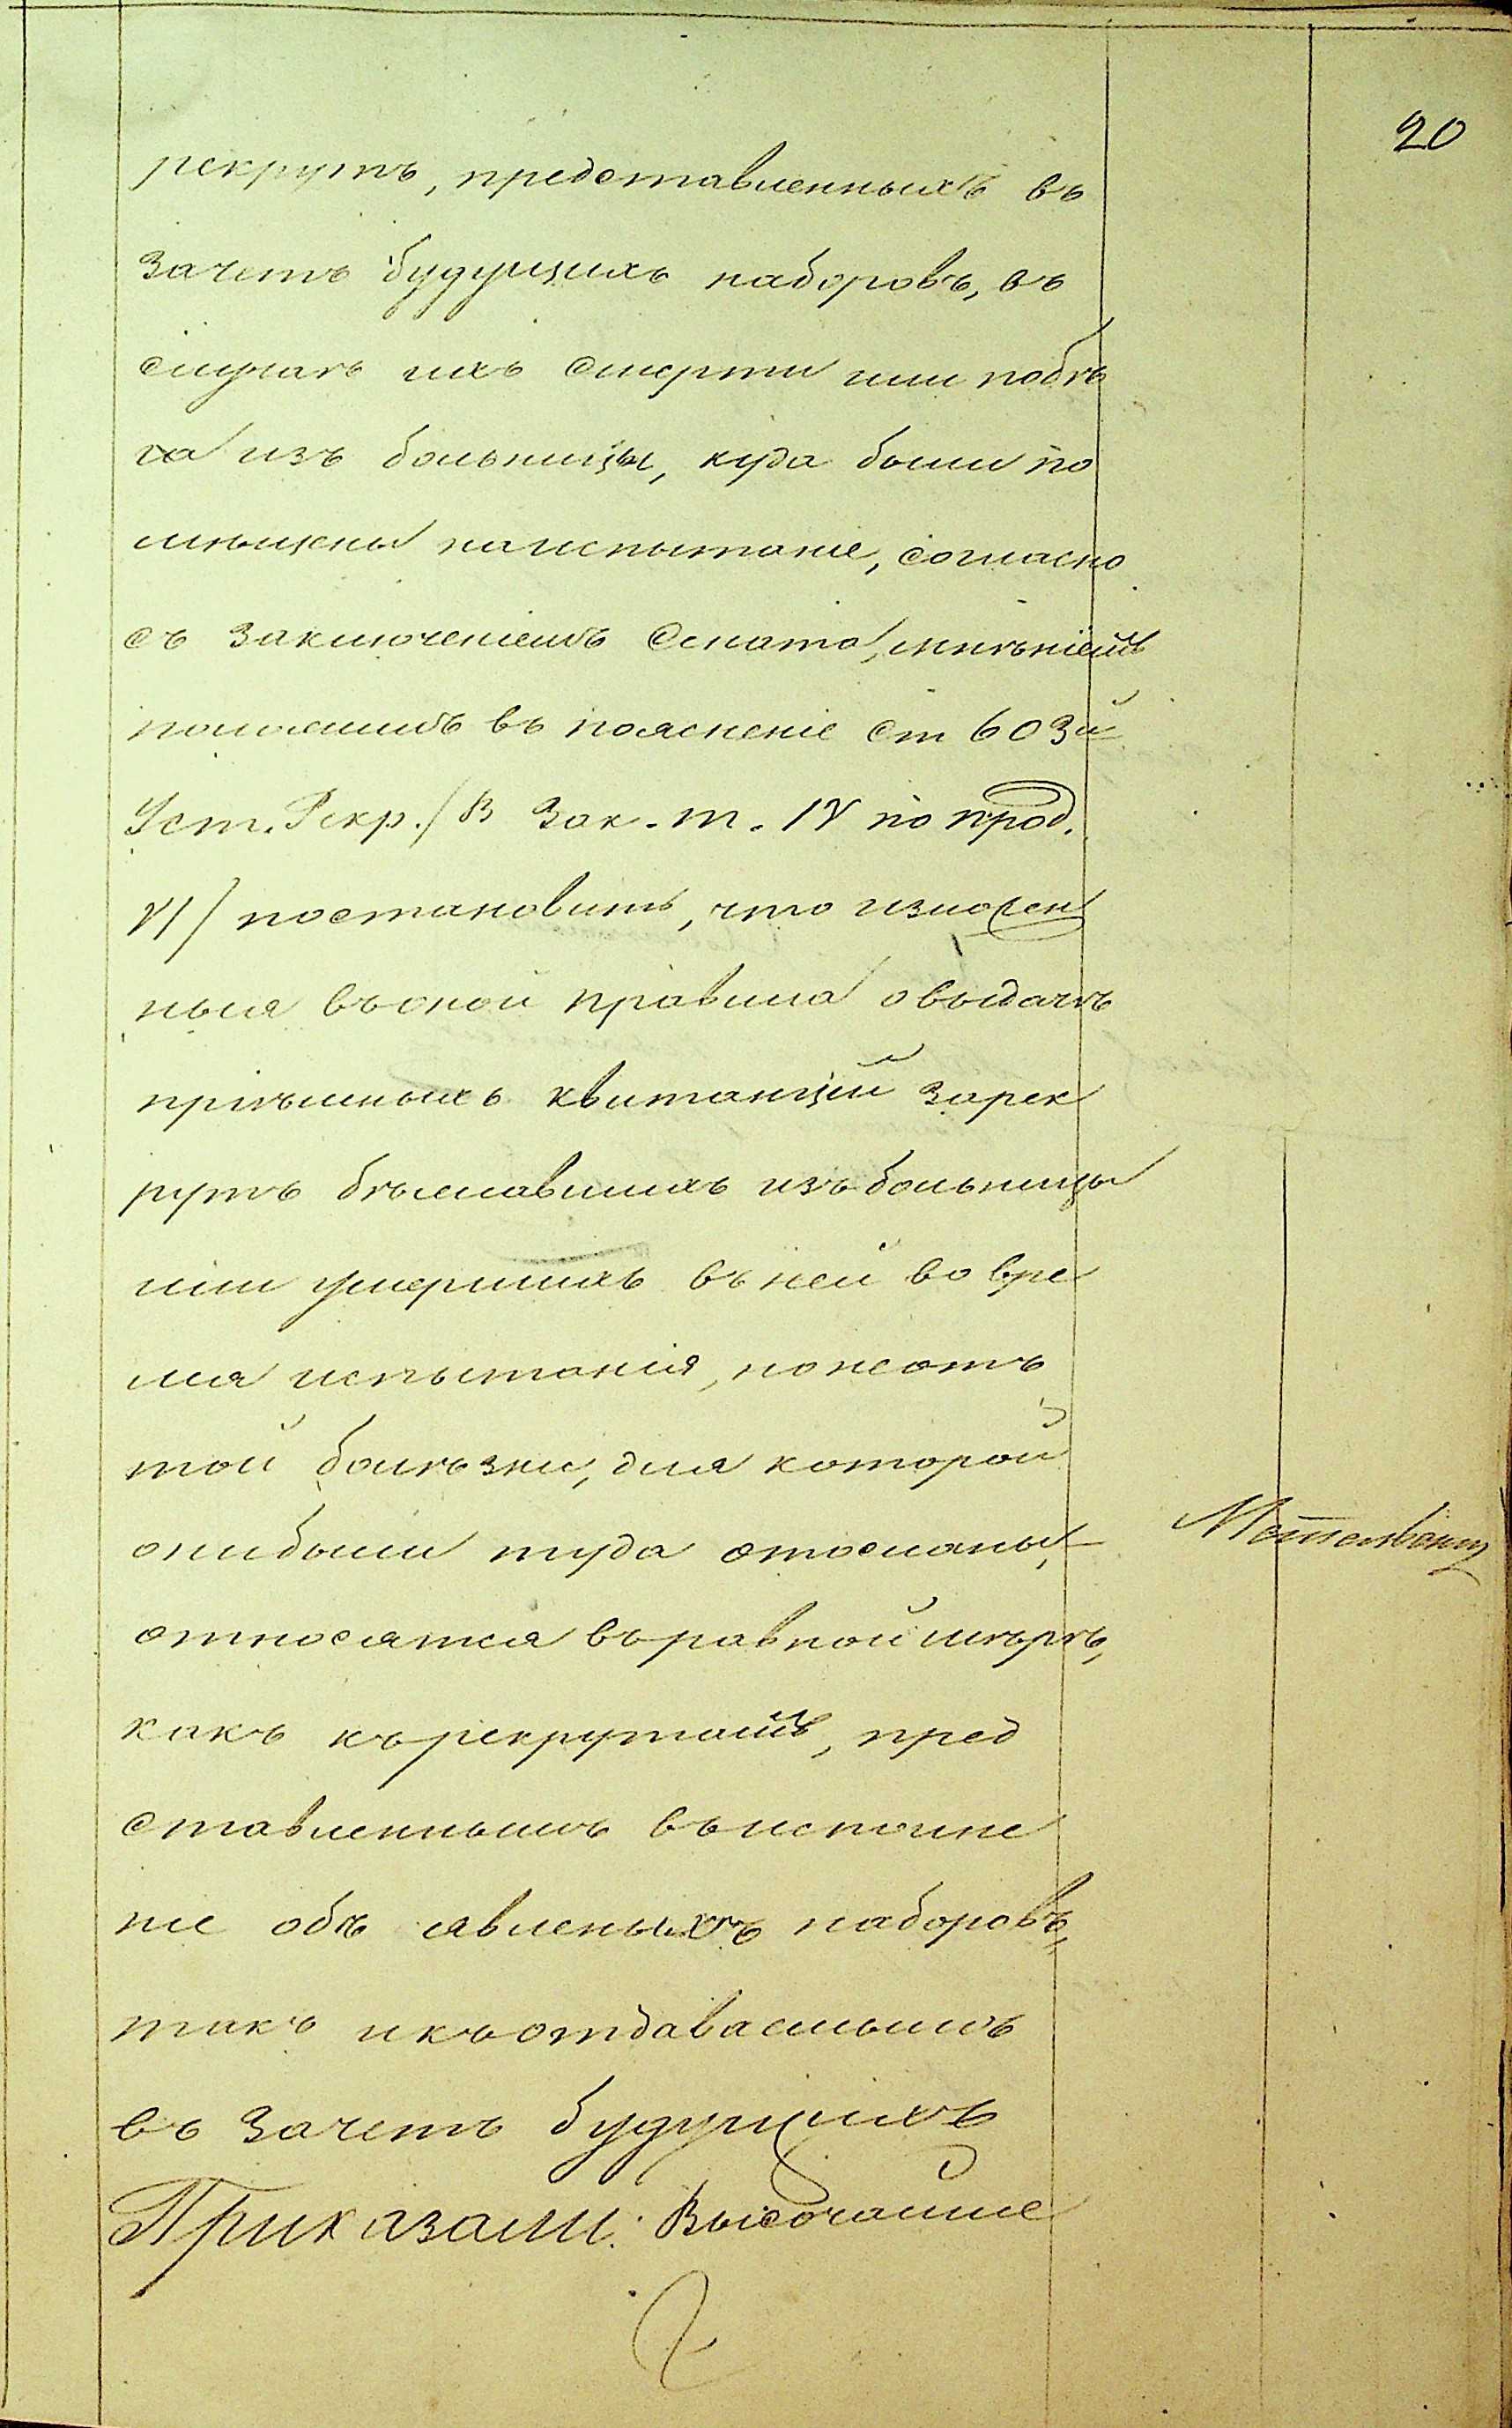 20
рекрутъ, представленныхъ въ
зачетъ будущихъ наборовъ, въ
случаѣ ихъ смерти или побѣ
га изъ больницы, куда были по
мѣщены на испытаніе, согласно
съ заключеніемъ Сената, мнѣніемъ
положилъ въ поясненіе ст 603й
Уст. Рекр. /Св Зак. т. IV по прод.
VI/ постановить, что изложен
ныя въ оной правила о выдачѣ
пріемныхъ квитанцій за рек
рутъ бѣжавшихъ изъ больницы
или умершихъ въ ней во вре
мя испытанія, но не отъ
той болѣзни, для которой
они были туда отосланы,
относятся въ равной мѣрѣ,
какъ къ рекрутамъ, пред
ставленнымъ въ исполне
ніе объ явленыхъ наборовъ,
такъ и къ отдаваемымъ
въ зачетъ будущихъ
Приказали: Высочайше